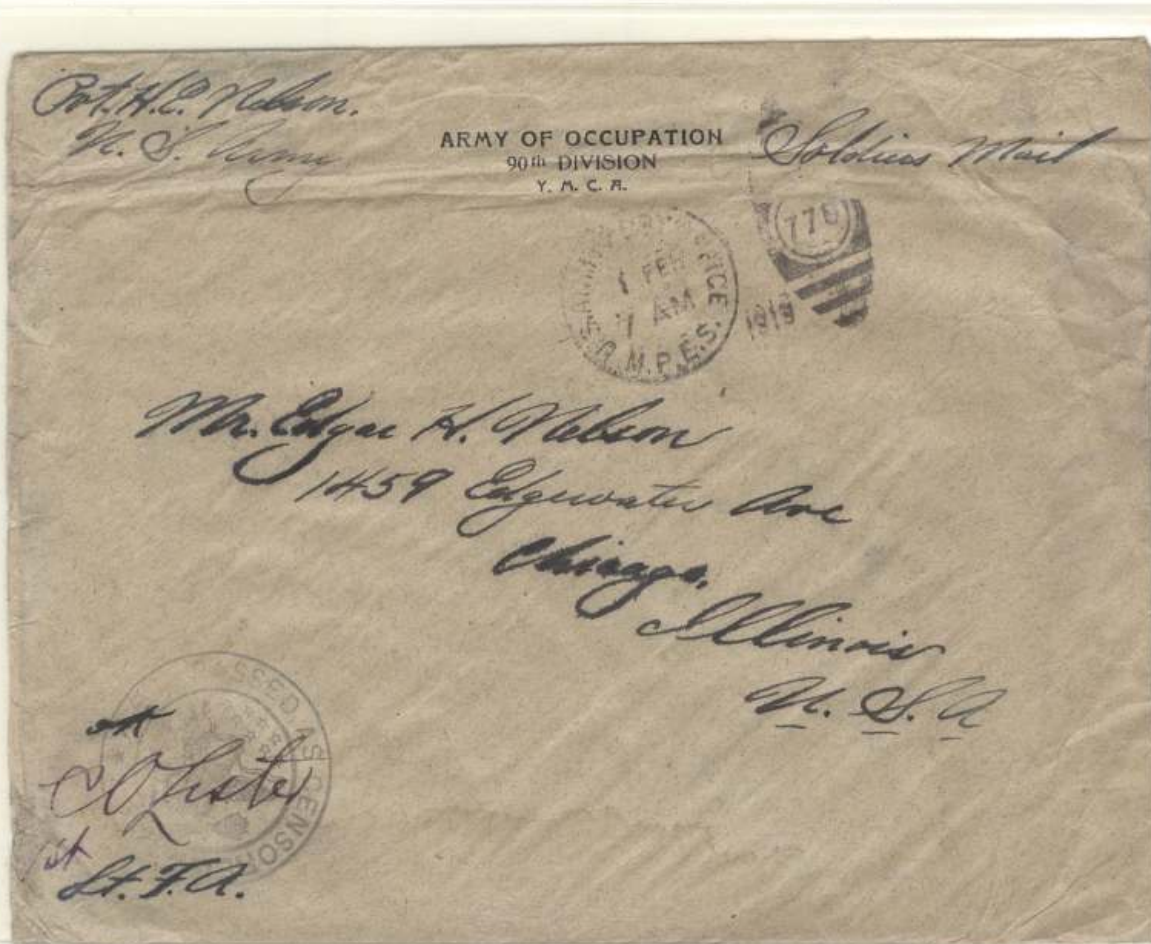 Pvt. H. E. Nelson.
U. S. Army
ARMY OF OCCUPATION
90th DIVISION
Y. M. C. A.
Soldiers Mail
SERVICE
1 FEB
7 AM
M.P.E.S.
1919
Mr. Edgar H. Nelson
1459 Edgewater Ave
Chicago,
Illinois
U. S. A
PASSED AS CENSORED
OK
Lt. F.A.